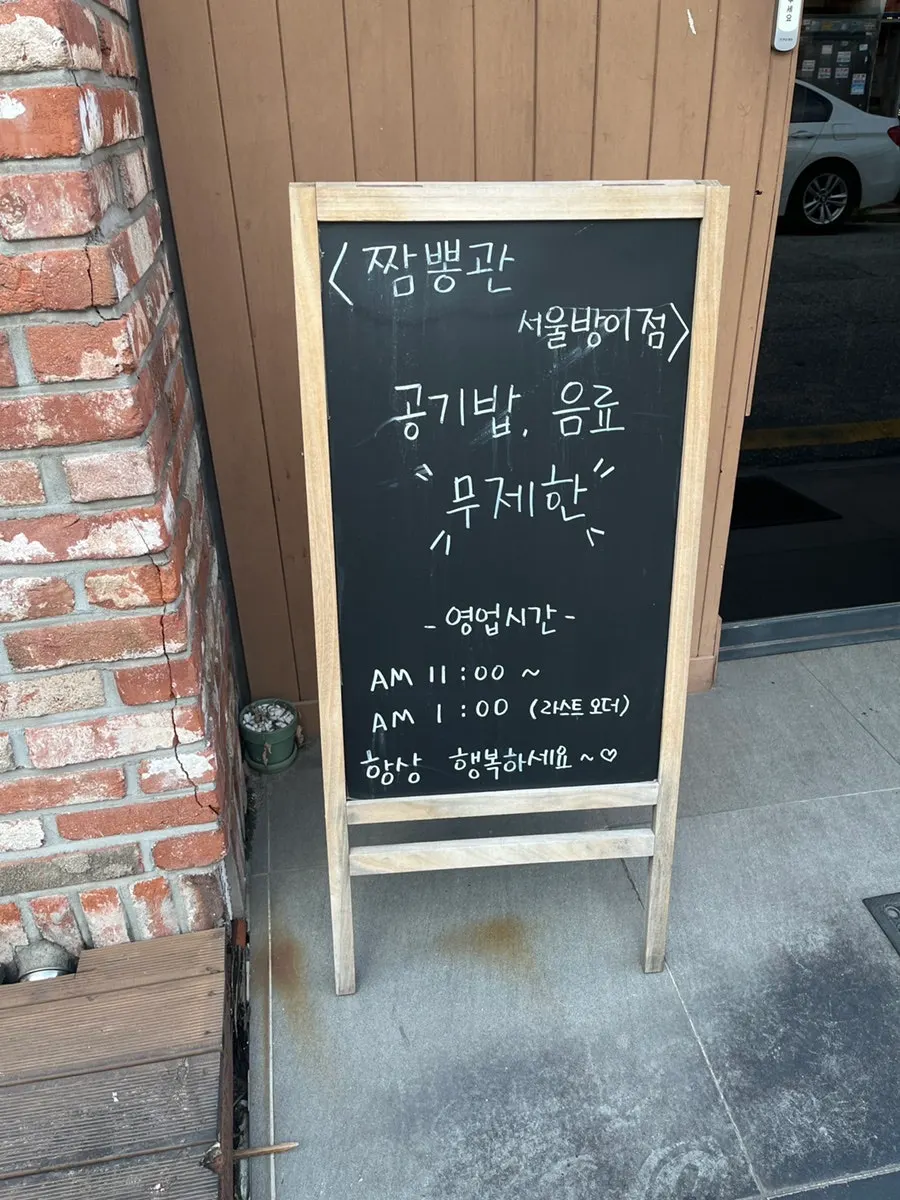 <짬뽕관
서울방이점>
공기밥, 음료
무제한
- 영업시간 -
AM 11:00 ~
AM 1:00 (라스트 오더)
항상 행복하세요~♡